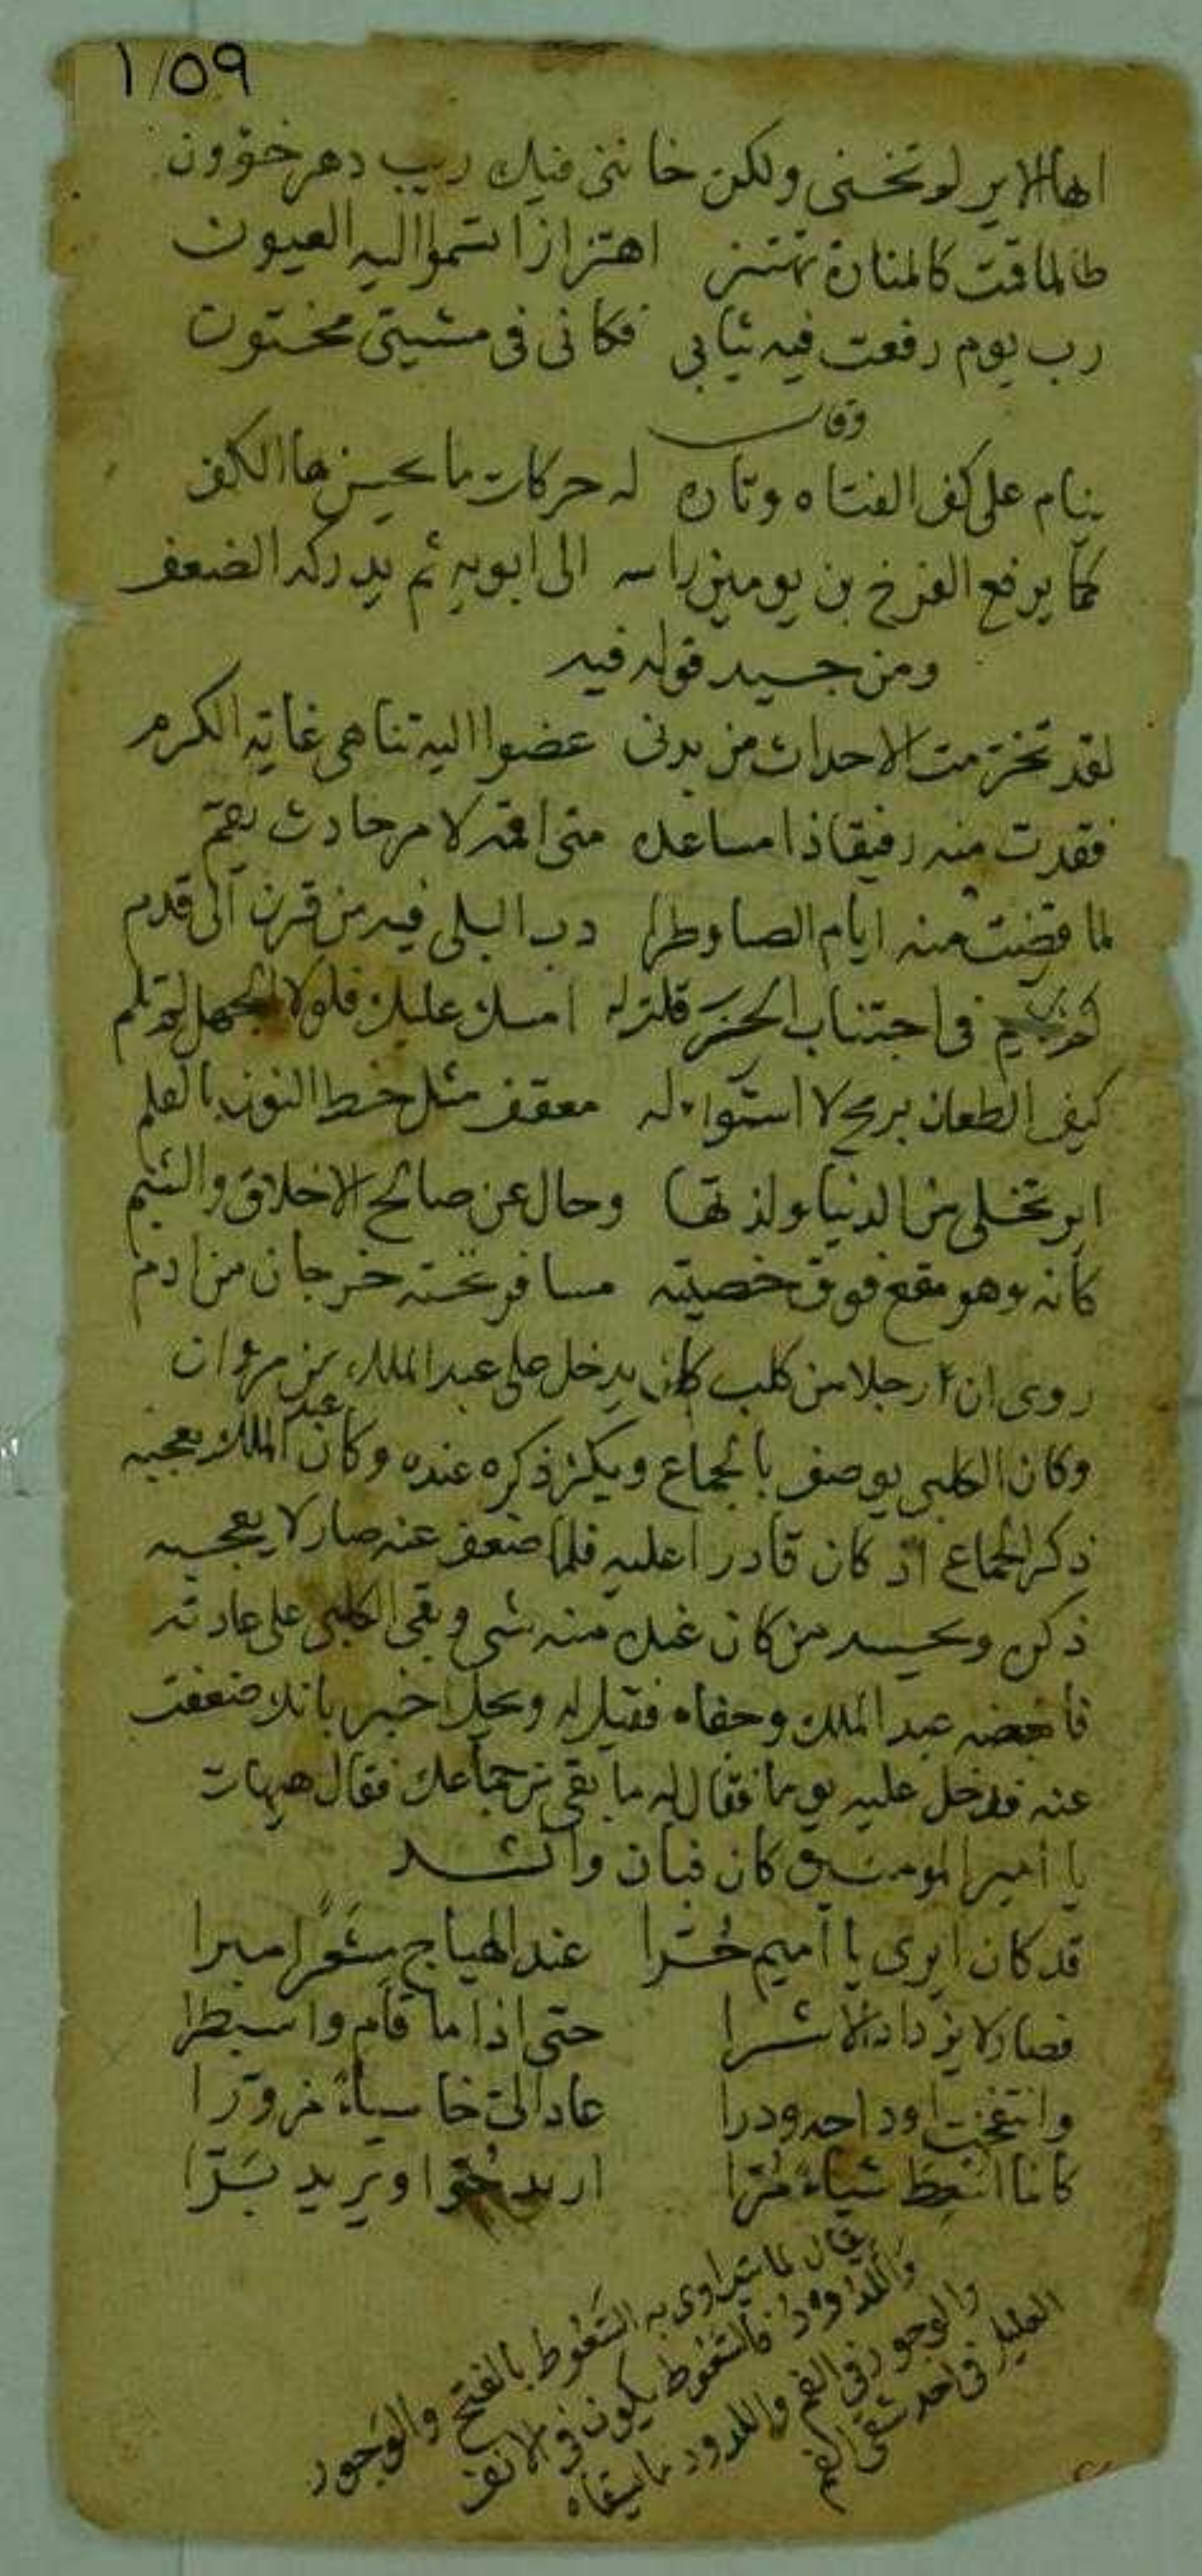 ١/٥٩
ايها الاير لم تخني ولكن خانني فيك ريب دهر خؤون
طالما قمت كالمنارة تهتز اهتزازا تسموا اليه العيون
رب يوم رفعت فيه ثيابي فكاني في مشيتي مختون
وقال
ينام على كف الفتاه وتارة له حركات ما يحس بها الكف
كما يرفع الفرخ بن يومين راسه الى ابويه ثم يدركه الضعف
ومن جيد قوله فيه
لقد تخرمت الاحداث من بدني عضوا اليه تناهى غاية الكرم
فقدت منه رفيقا ذا مساعدة متى اقمه لامر حادث يقم
لما قضيت منه ايام الصبا وطرا دب البلى فيه من قرن الى قدم
في اجتناب قلت له امسك عليك فلولا الجهل لم تلم
كيف الطعان برمح لا استواء له معقف مثل خط النون بالقلم
اير تخلى من الدنيا ولذتها وحال عن صالح الاخلاق والشيم
كانه وهو مقع فوق خصيته مسافر تحته خرجان من ادم
روى ان رجلا من كلب كان يدخل على عبد الملك بن مروان
وكان الكلبي يوصف بالجماع ويكثر ذكره عنده وكان عبد الملك يعجبه
ذكر الجماع اذ كان قادرا عليه فلما ضعف عنه صار لا يعجبه
ذكره ويحسد من كان عنده منه شي وبقي الكلبي على عادته
فابغضه عبد الملك وجفاه فقيل له ويحك اخبره بانك ضعفت
عنه فدخل عليه يوما فقال له ما بقي من جماعك فقال هيهات
يا امير المومنين كان فبان وانشد
قد كان ايري يا اميم حرا عند الهياج مبرا
فصار لا يزداد الا شرا حتى اذا ما قام واسبطرا
وانتفخت اوداجه ودرا عاد الي خاسياء مزورا
كانما شياء مرا اريد حوا ويريد برا
يقال لما يتداوى به السعوط بالفتح والوجور
واللدود فالسعوط يكون في الانف
والوجور في الفم واللدود ما يسقاه
العليل في احد شقي الفم